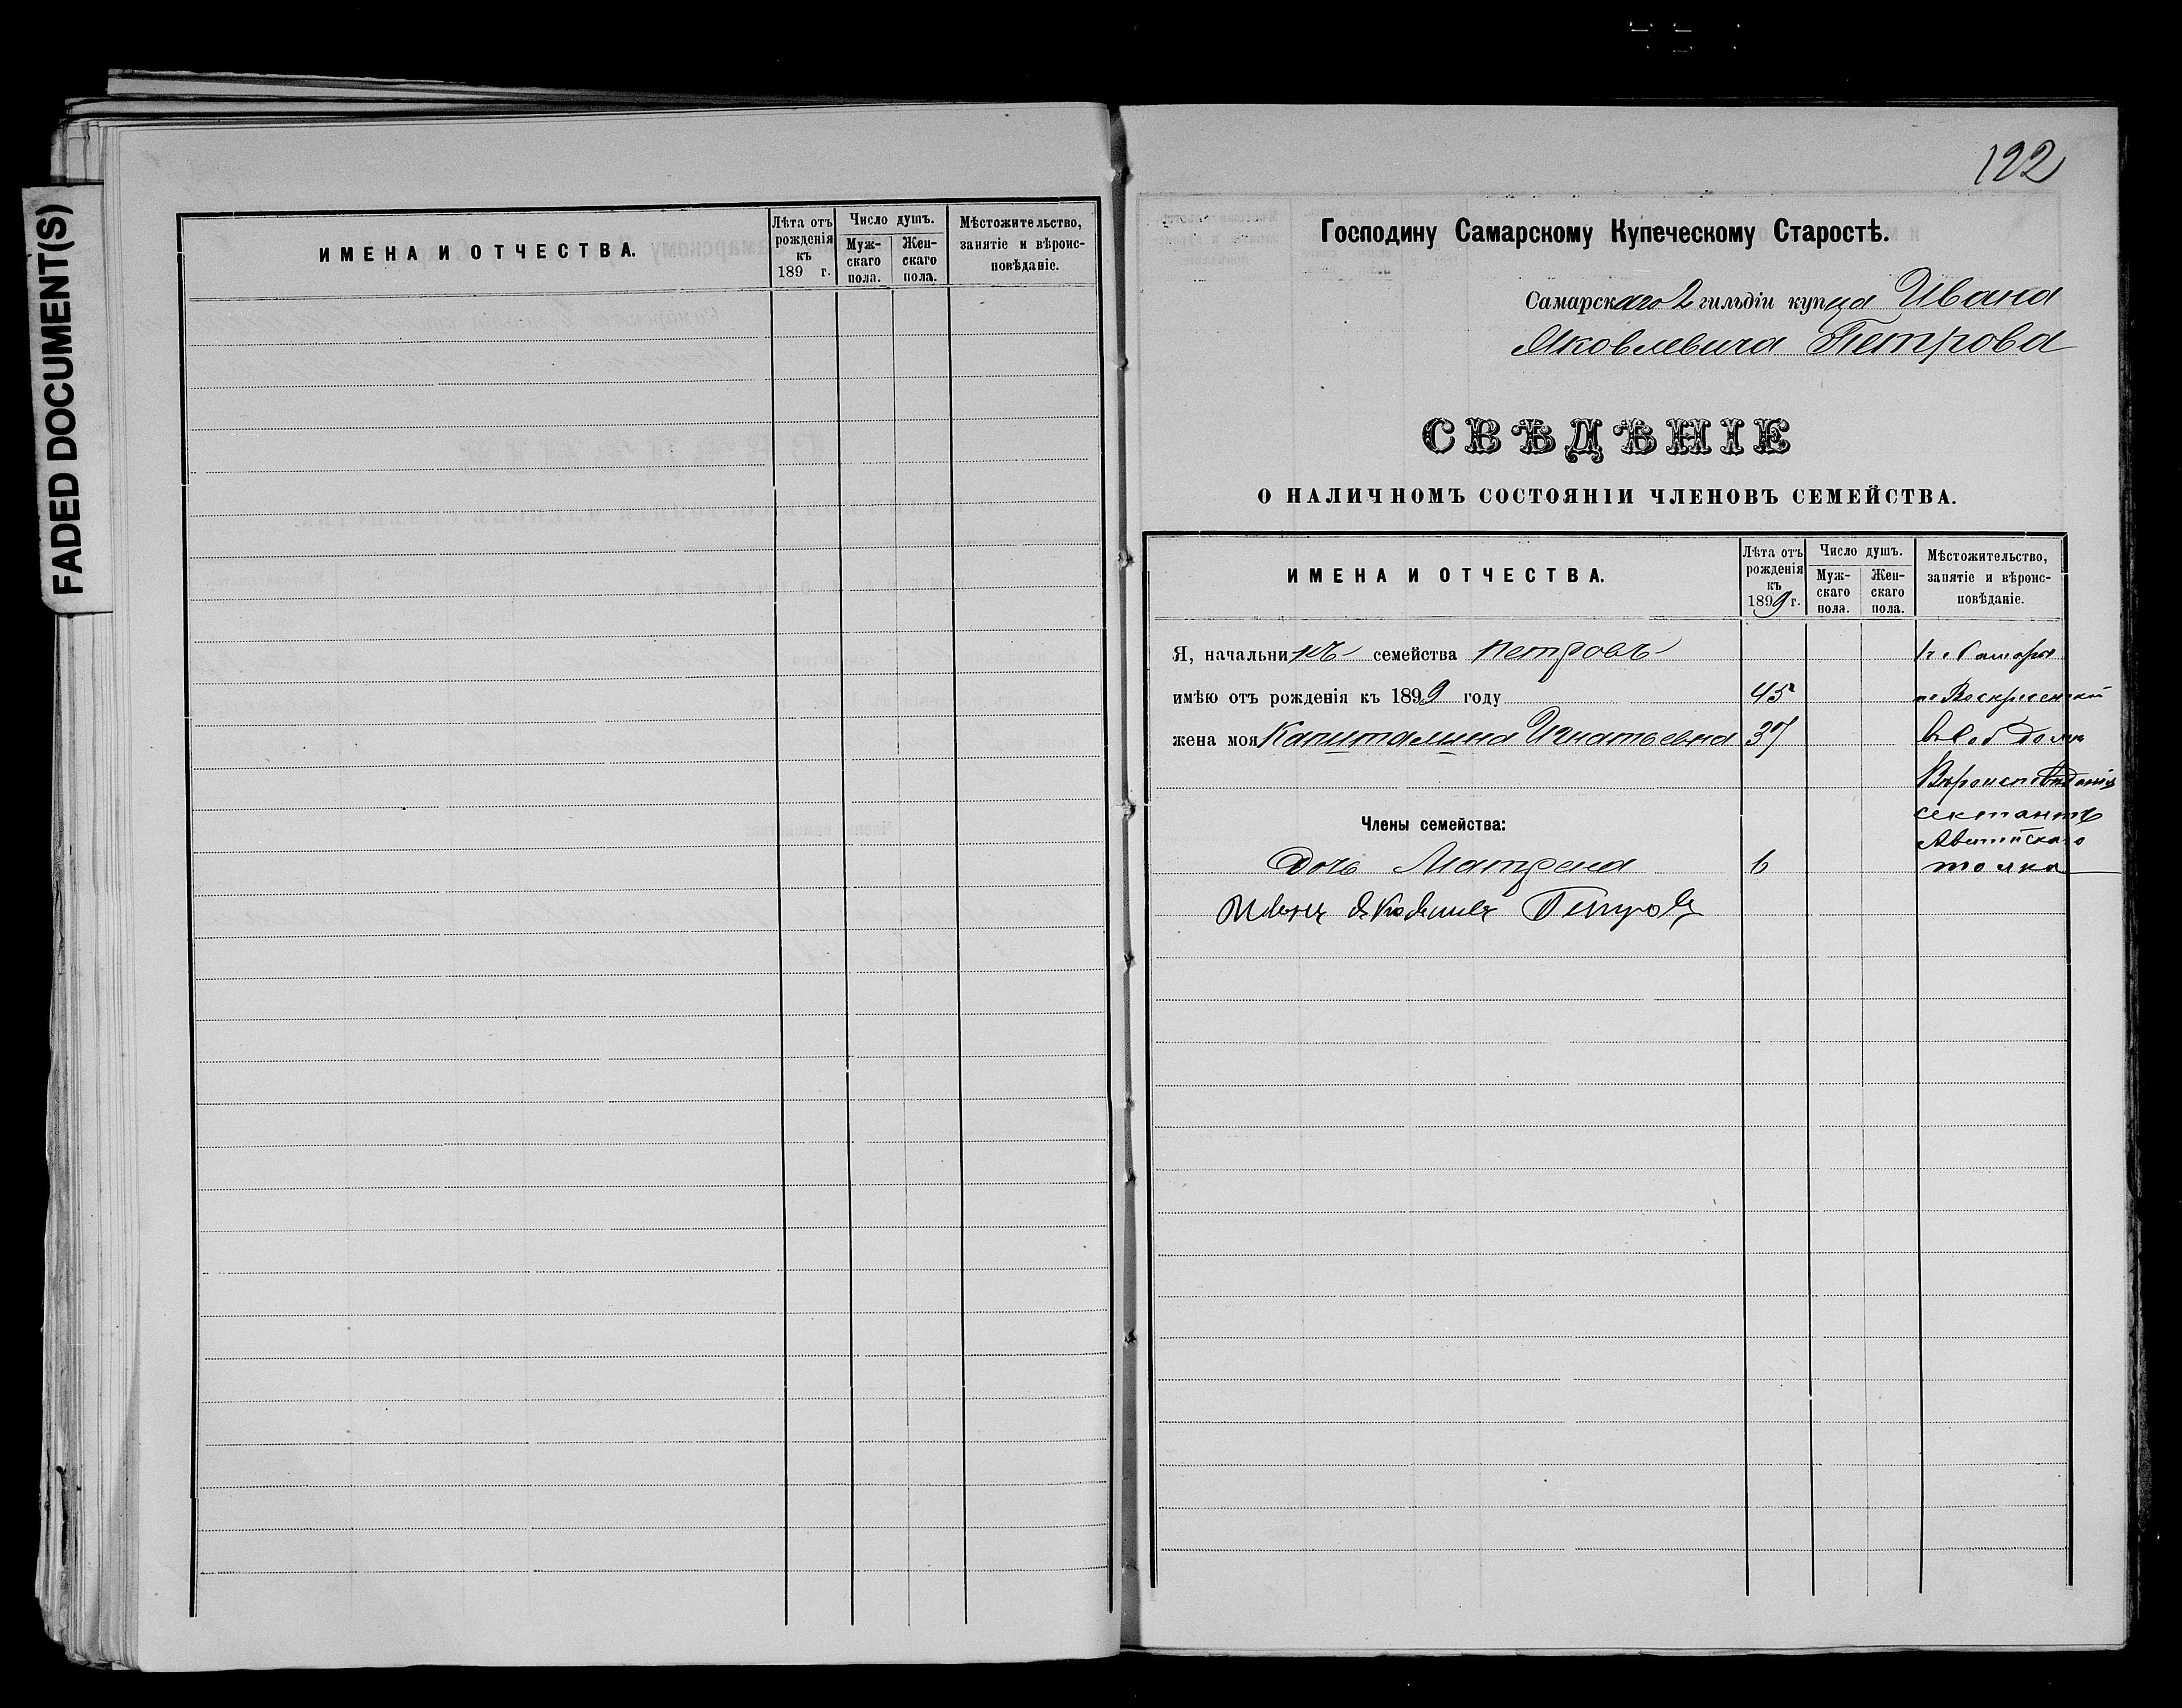 FADED DOCUMENT(S)
ИМЕНА И ОТЧЕСТВА.
Лѣта отъ рожденія къ 189 г.
Число душъ.
Мужскаго пола.
Женскаго пола.
Мѣстожительство, занятіе и вѣроисповѣданіе.
122
Господину Самарскому Купеческому Старостѣ.
Самарскаго 2 гильдіи купца Ивана
Яковлевича Петрова
СВѢДѢНІЕ
О НАЛИЧНОМЪ СОСТОЯНІИ ЧЛЕНОВЪ СЕМЕЙСТВА.
ИМЕНА И ОТЧЕСТВА.
Лѣта отъ рожденія къ 1899 г.
Число душъ.
Мужскаго пола.
Женскаго пола.
Мѣстожительство, занятіе и вѣроисповѣданіе.
Я, начальникъ семейства Петровъ Самары
имѣю отъ рожденія къ 1899 году 45 Воскресенской
жена моя Капиталина Игнатьевна 37 доме
Вѣроисповѣданія
сектантъ
Члены семейства:
Дочь Матрена 6 толка
Иванъ Яковлевъ Петровъ